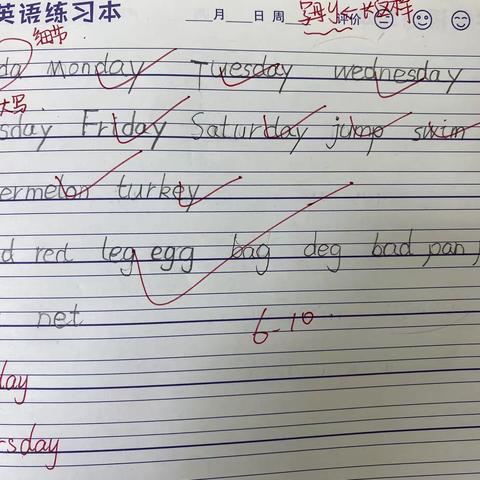 英语练习本 ___月___日 周___ 评价
细节 字母y←长这样
da Monday Tuesday wednesday
大写
sday Friday Saturday jump swim
ermelon turkey
d red leg egg bag deg bad pan
net
6-10
day
rsday